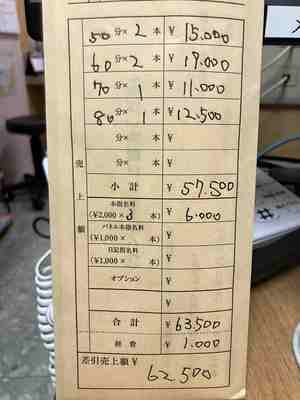 50分× 2 本 ¥ 15.000
60分× 2 本 ¥ 19.000
70分× 1 本 ¥ 11.000
80分× 1 本 ¥ 12.500
分× 本 ¥
分× 本 ¥
売上額
小計 ¥ 57.500
本指名料
(¥2,000× 3 本) ¥ 6.000
パネル本指名料
(¥1,000× 本) ¥
日記指名料
(¥1,000× 本) ¥
オプション ¥
¥
合計 ¥ 63.500
経費 ¥ 1.000
差引売上額 ¥
62.500